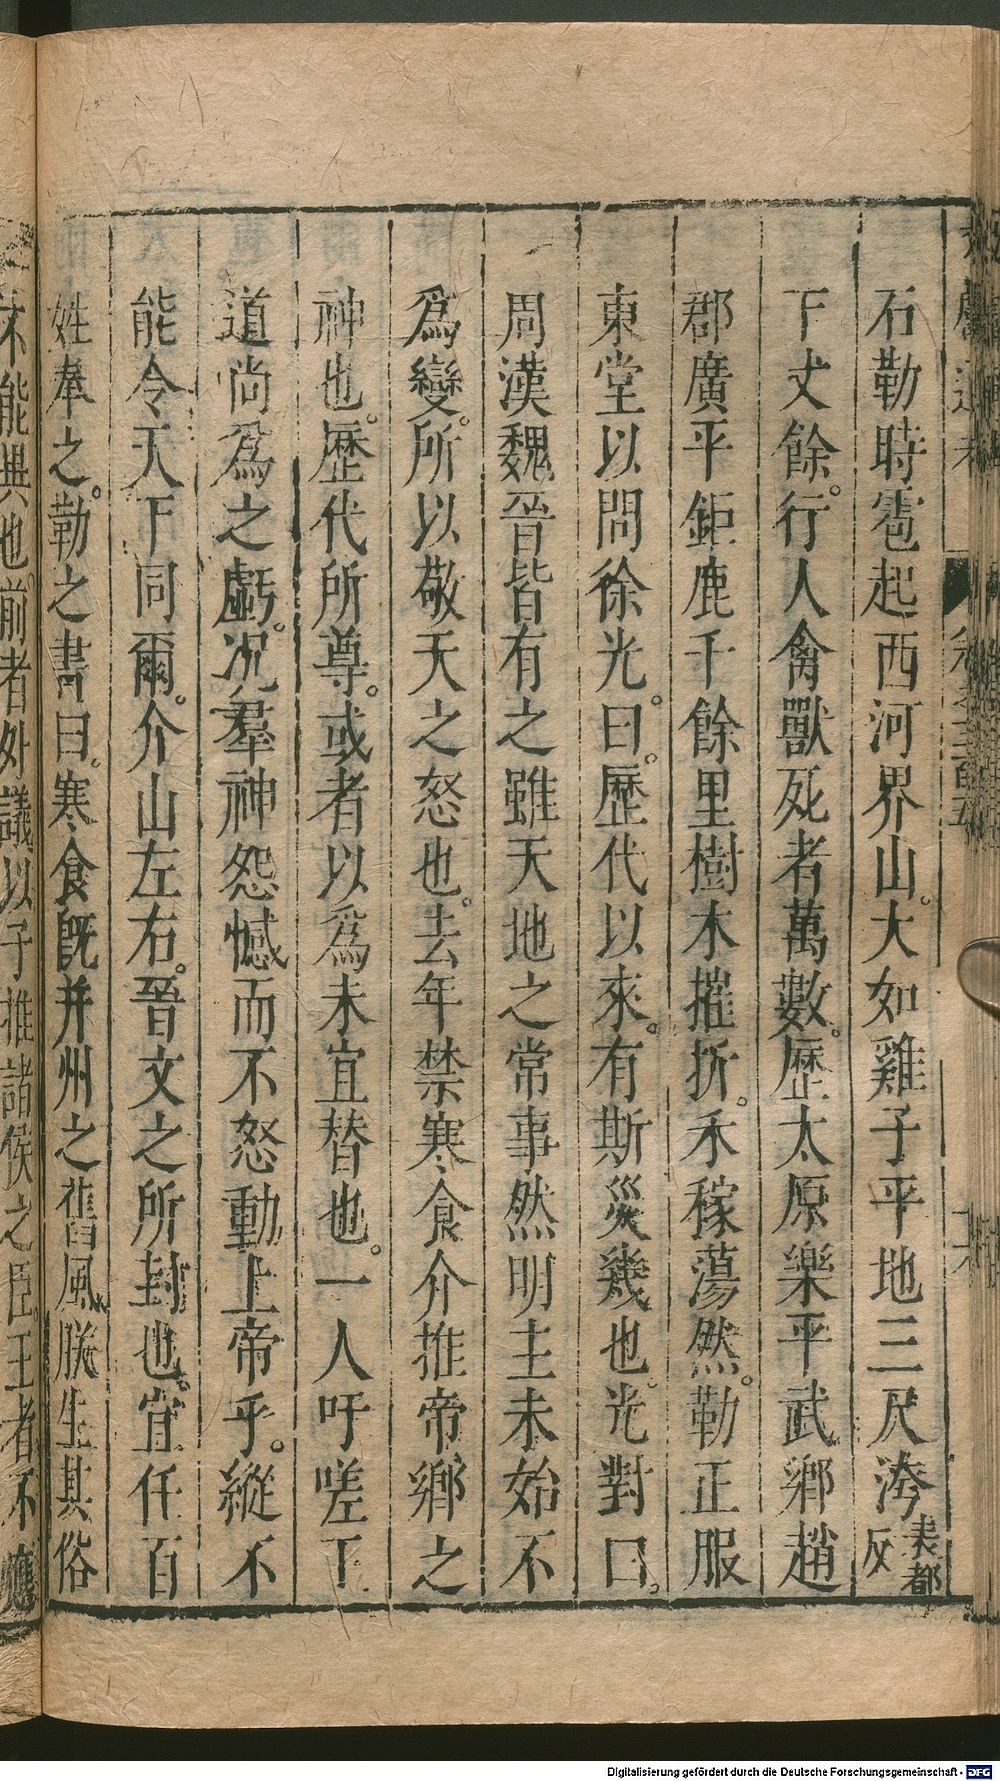 石勒時雹起西河界山大如雞子平地三尺洿
下丈餘行人禽獸死者萬數歷太原樂平武鄉趙
郡廣平鉅鹿千餘里樹木摧折禾稼蕩然勒正服
東堂以問徐光曰歷代以來有斯災幾也光對曰
周漢魏晉皆有之雖天地之常事然明主未始不
爲變所以敬天之怒也去年禁寒食介推帝鄉之
神也歷代所尊或者以爲未宜替也一人吁嗟王
道尚爲之虧况羣神怨憾而不怒動上帝乎縱不
能令天下同爾介山左右晉文之所封也宜任百
姓奉之勒之書曰寒食旣并州之舊風朕生其俗
不能異也前者外議以子推諸侯之臣王者不應
Digitalisierung gefördert durch die Deutsche Forschungsgemeinschaft - DFG